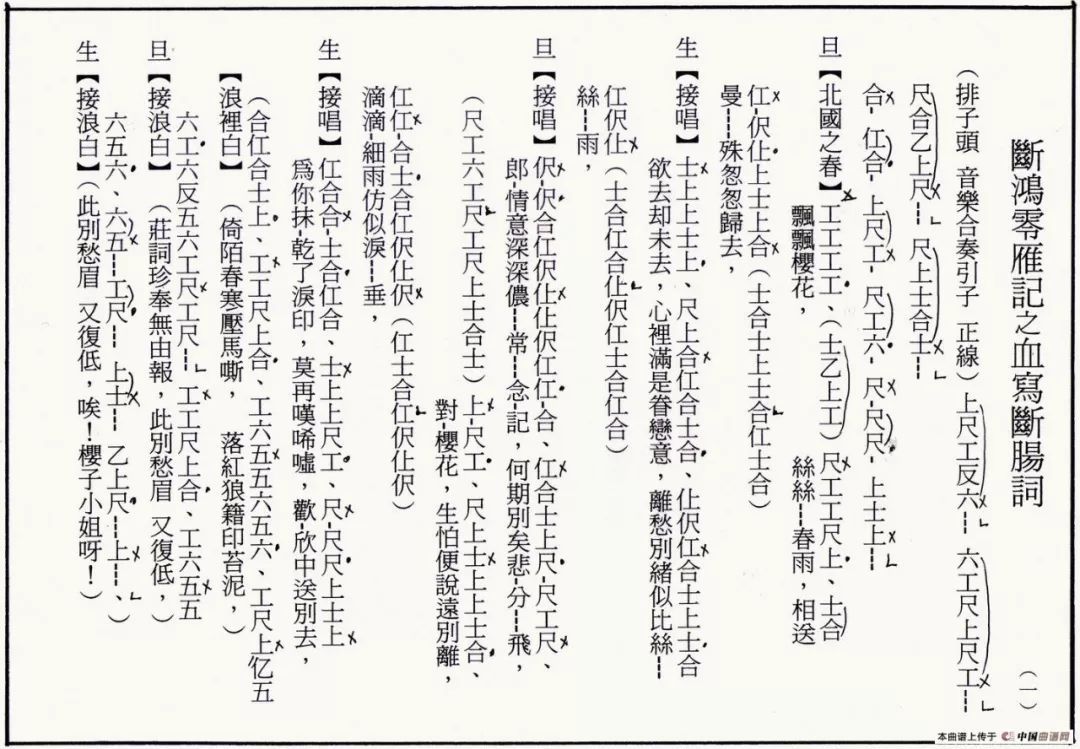 斷鴻零雁記之血寫斷腸詞
（一）
（排子頭 音樂合奏引子 正線）上尺工反六┅ 六工尺上尺工┅
尺合乙上尺┅ 尺上士合士┅
合-仜合· 上尺工-尺工六·尺-尺尺·上士上┅
旦【北國之春】工工工工、（士乙上工）尺工工尺上、士合
飄飄櫻花， 絲絲┅春雨，相送
仜-伬仩上士上合（士合士上士合仜士合）
曼┅殊怱怱歸去，
生【接唱】士上上士上、尺上合仜合士合、仩伬仜合士上士合
欲去却未去，心裡滿是眷戀意，離愁別緒似比絲┅
仜伬仩（士合仜合仩伬仜士合仜合）
絲┅雨，
旦【接唱】伬-伬合仜伬仩仩伬仜仜-合、仜合士上尺-尺工尺、
郎-情意深深儂┅常┅念-記，何期別矣悲-分┅飛，
（尺工六工尺工尺上士合士）上-尺工、尺上士上上士合、
對-櫻花，生怕便說遠別離，
仜仜-合士合仜伬仩伬（仜士合仜伬仩伬）
滴滴-細雨仿似淚┅垂，
生【接唱】仜合合-士合仜合、士上上尺工、尺-尺尺上士上
爲你抹-乾了淚印，莫再嘆唏噓，歡-欣中送別去，
（合仜合士上、工工尺上合、工六五五六五六、工尺上伬五
【浪裡白】（倚陌春寒壓馬嘶， 落紅狼籍印苔泥，）
六工六反五六工尺工尺┅ 工工尺上合、工六五五
旦【接浪白】（莊詞珍奉無由報，此別愁眉 又復低，）
六五六、六五┅工尺┅ 上士┅ 乙上尺┅上┅、）
生【接浪白】（此別愁眉 又復低，唉！櫻子小姐呀！）
本曲谱上传于 中国曲谱网